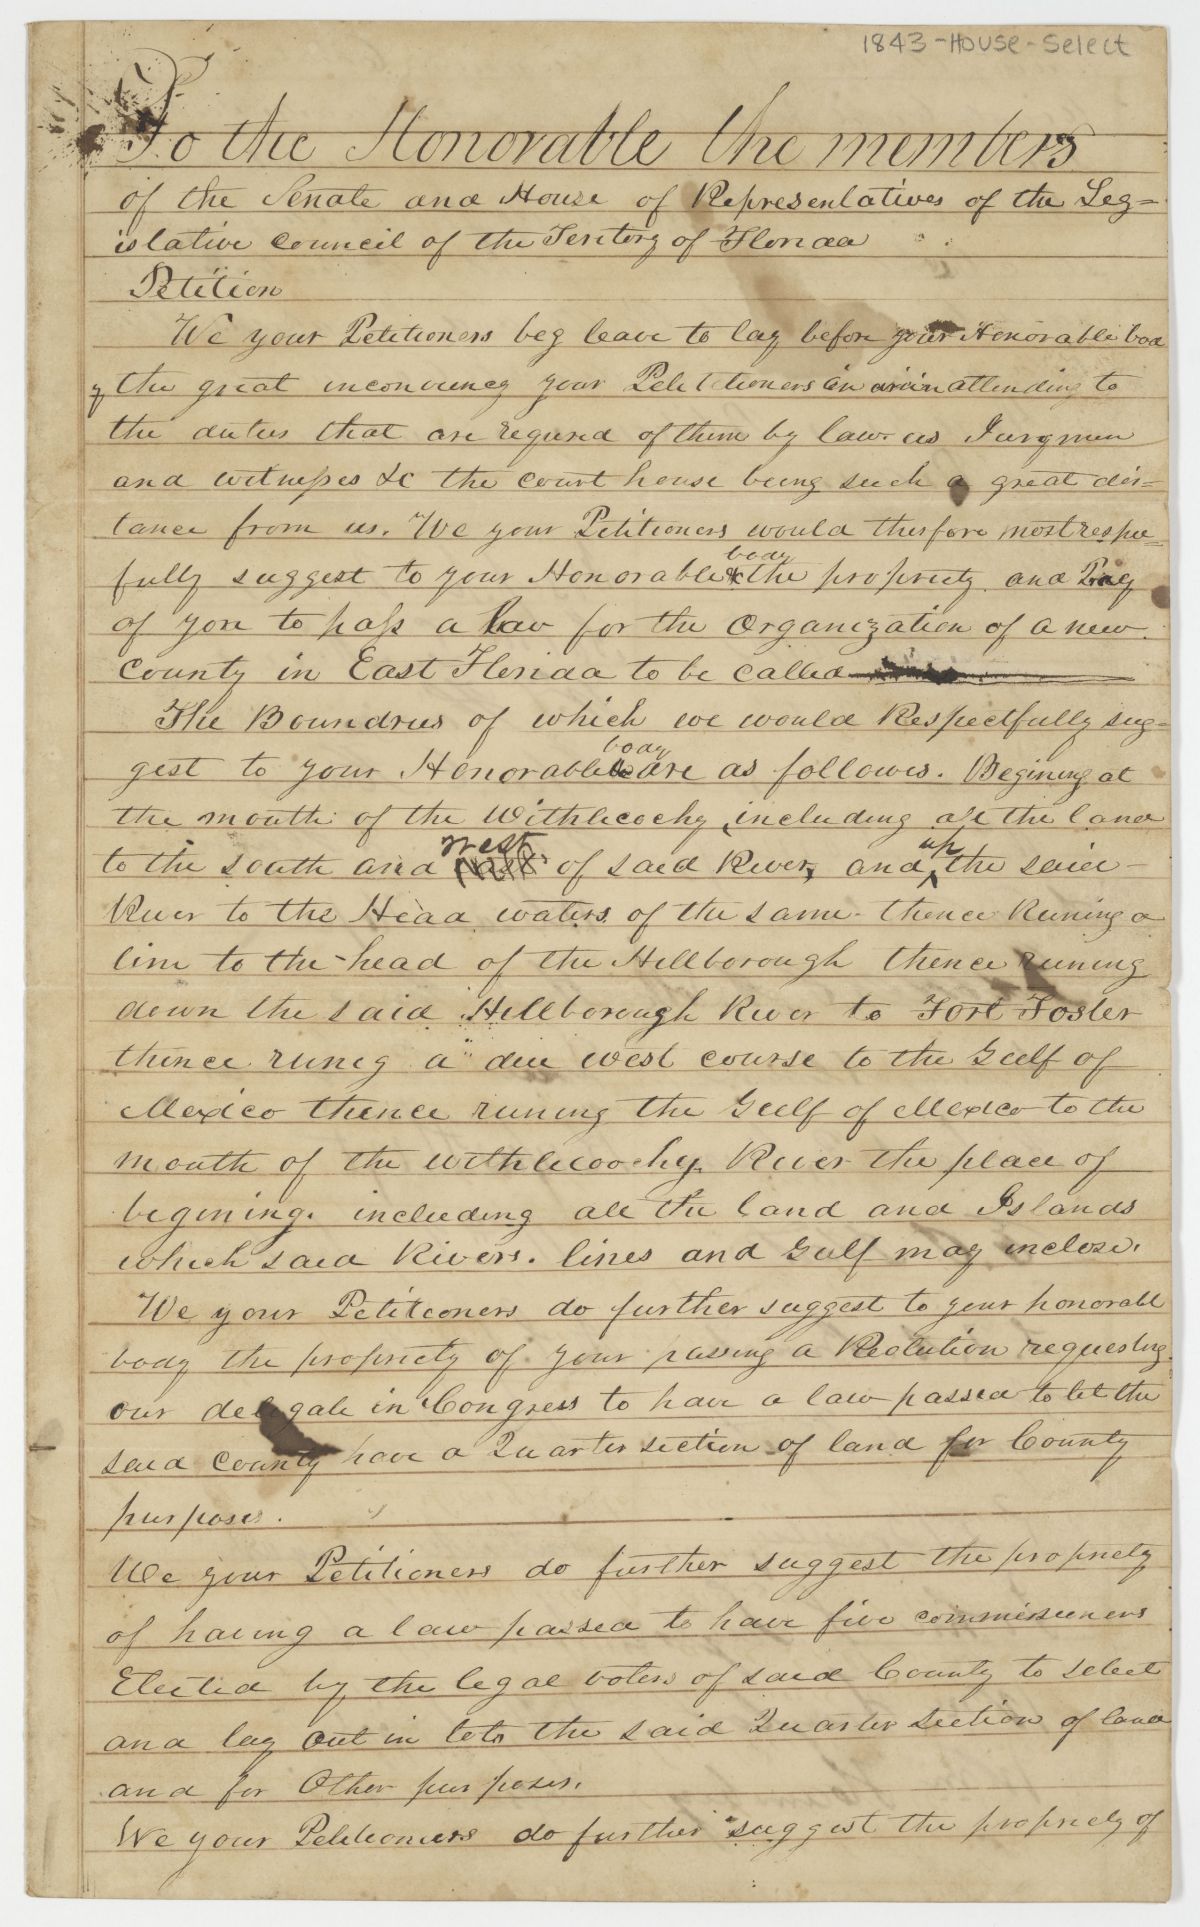 1843-House-Select
To the Honorable the members
of the Senate and House of Representatives of the Leg=
islative Council of the Teritory of Florida
Petition
We your Petitioners beg leave to lay before your Honorable bod
y the great inconvency your Petitioners in attending to
the duties that are requred of them by law as Jurymen
and witnesses &c the court house being such a great dis=
tance from us. We your Petitioners would therfore most respec=
fully suggest to your Honorable body the propriety and Pray
of you to pass a law for the Organization of a new
County in East Florida to be called
The Boundries of which we would Respectfully sug=
gest to your Honorable body are as follows. Begining at
the mouth of the Withlicochy, including all the land
to the south and west of said River, and up the said
River to the Head waters of the same thence Runing a
line to the head of the Hillborough thence runing
down the said Hillborough River to Fort Foster
thence runig a due west course to the Gulf of
Mexico thence runing the Gulf of Mexico to the
mouth of the Withlicoochy River the place of
begining. including all the land and Islands
which said Rivers. lines and Gulf may inclose.
We your Petitioners do further suggest to your honorabl
body the propriety of your passing a Reolution requesting
our delegate in Congress to have a law passed to let the
said County have a Quarter section of land for County
purposes.
We your Petitioners do further suggest the propriety
of having a law passed to have five commissioners
Elected by the legal voters of said County to select
and lay out in lots the said Quarter Section of land
and for Other purposes.
We your Petitioners do further suggest the propriety of